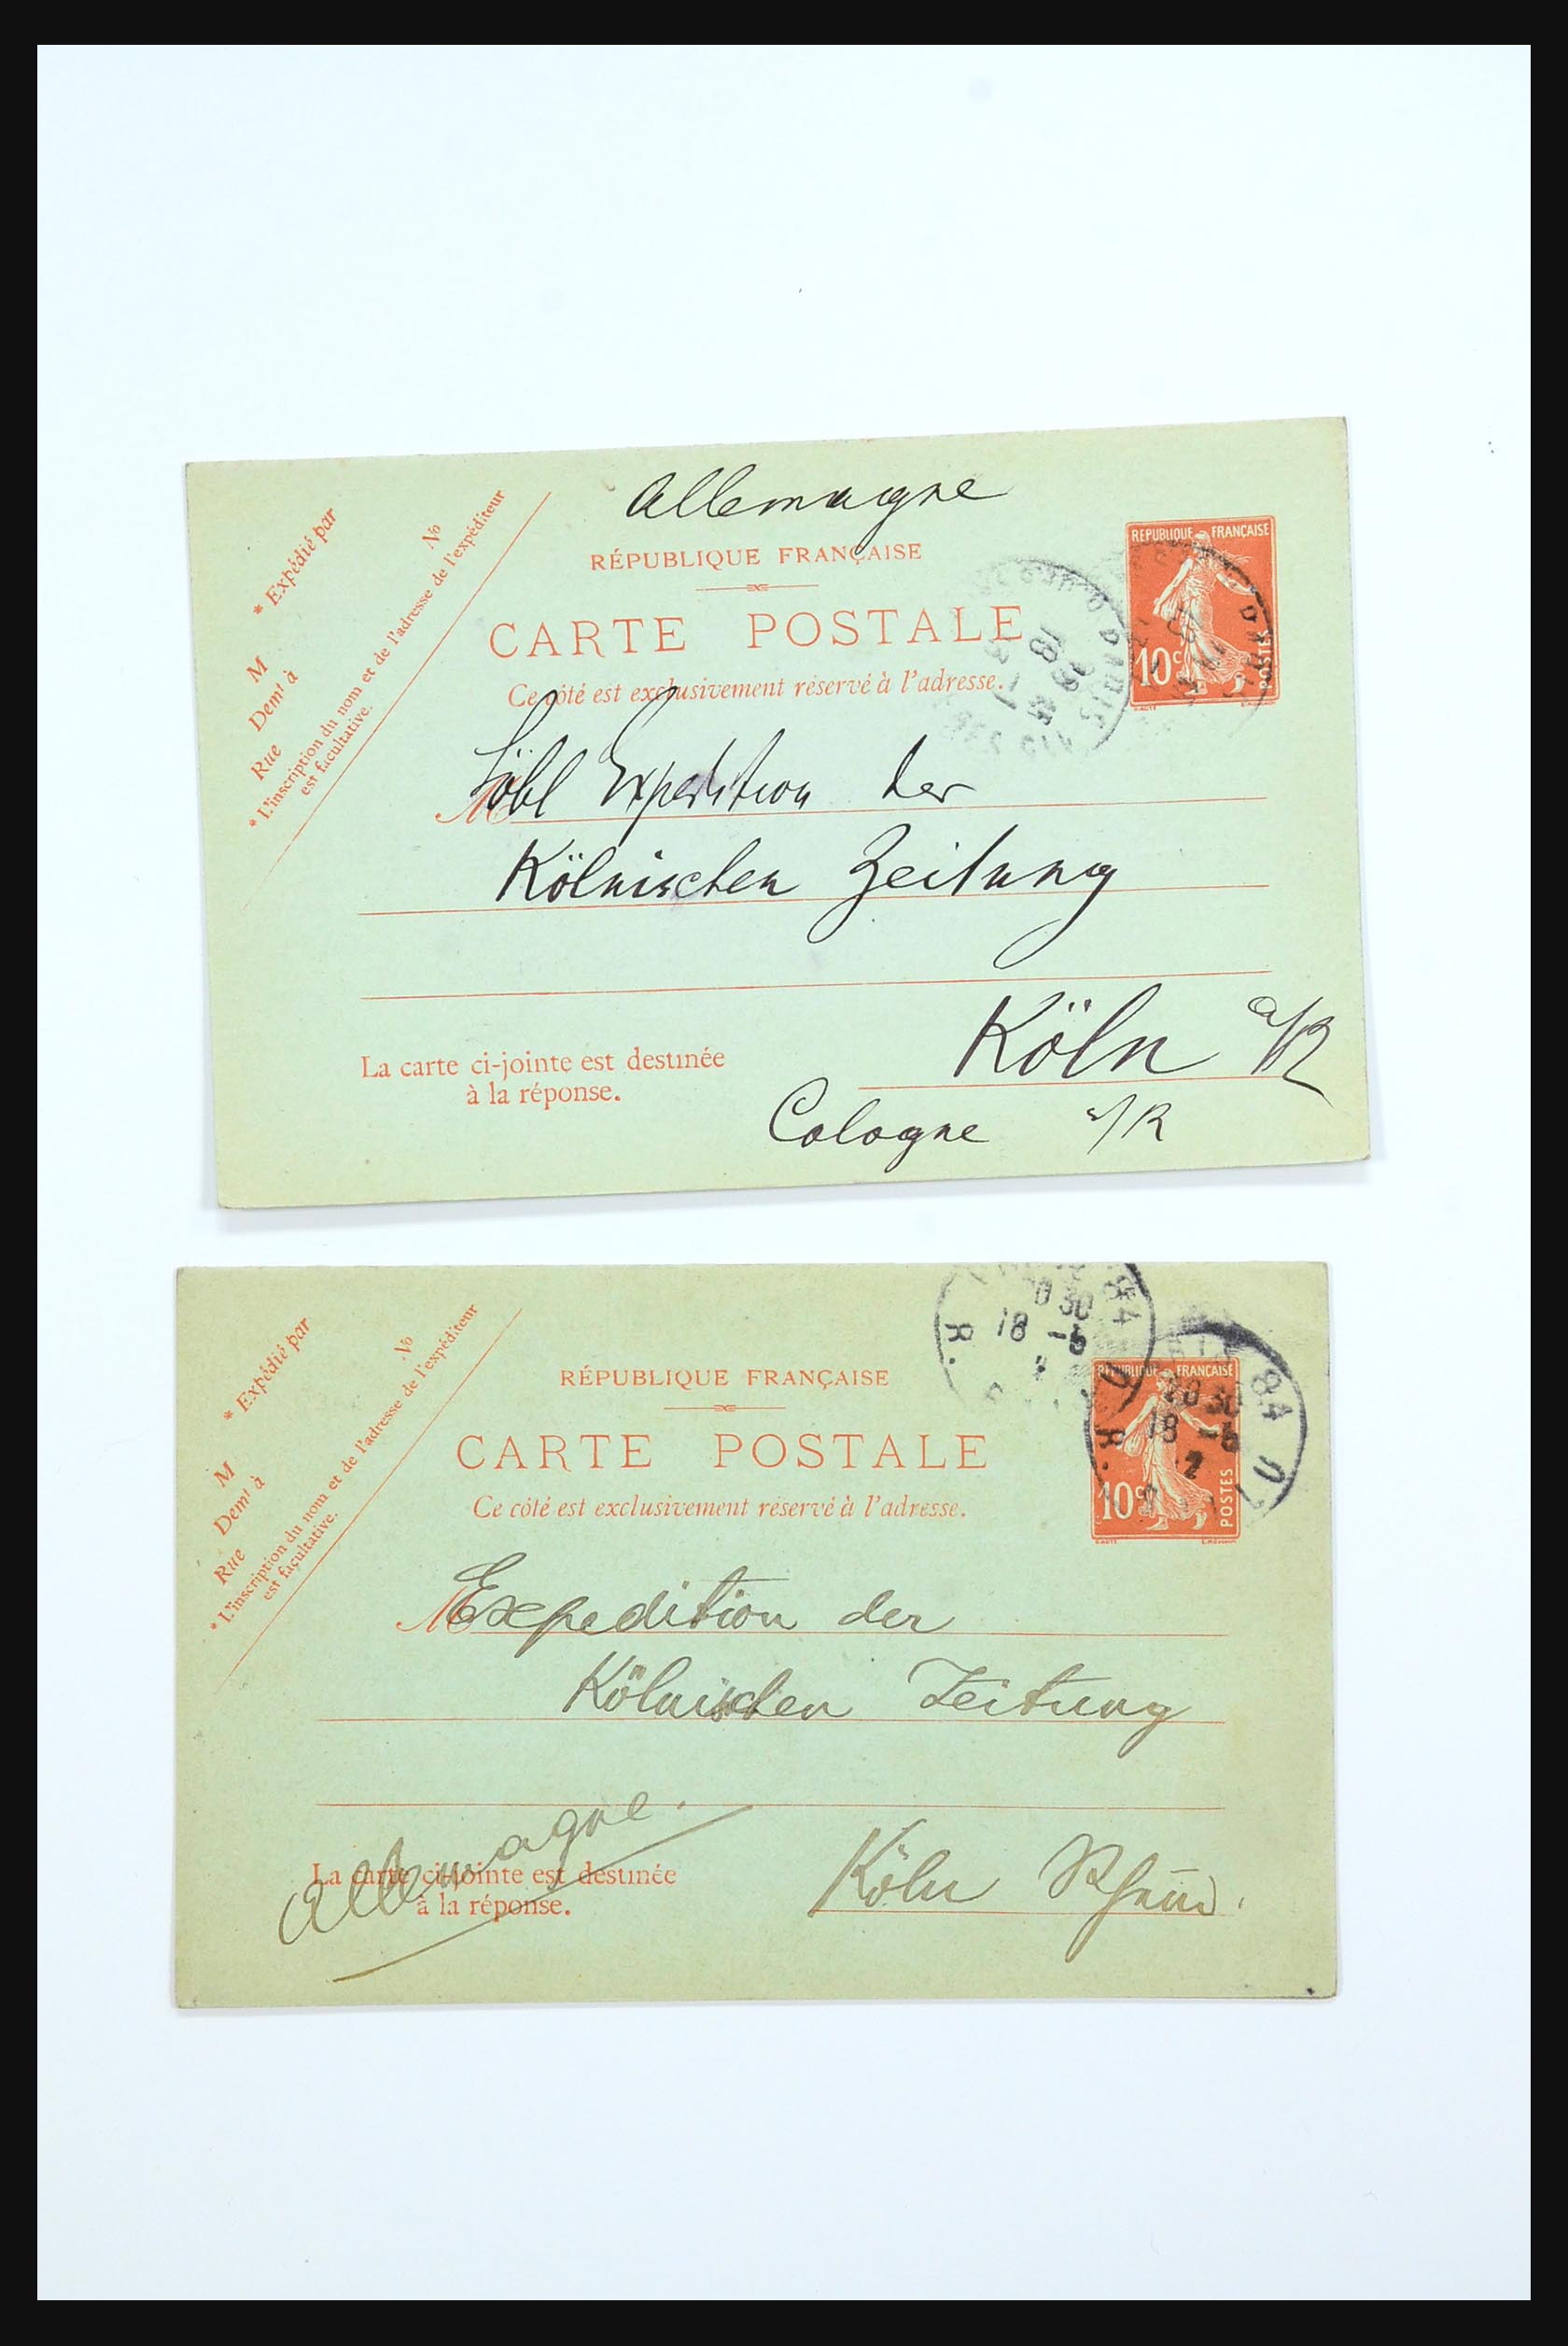 Allemagne
* Expédié par
No
M
Demt à
Rue
* L'inscription du nom et de l'adresse de l'expéditeur
est facultative.
RÉPUBLIQUE FRANÇAISE
CARTE POSTALE
Ce côté est exclusivement réservé à l'adresse.
REPUBLIQUE FRANÇAISE
10c
POSTES
M Löbl Expedition der
Kölnischen Zeitung
Köln a/R
Cologne a/R
La carte ci-jointe est destinée
à la réponse.
* Expédié par
No
M
Demt à
Rue
* L'inscription du nom et de l'adresse de l'expéditeur
est facultative.
RÉPUBLIQUE FRANÇAISE
CARTE POSTALE
Ce côté est exclusivement réservé à l'adresse.
30
18 -5
R.
84
REPUBLIQUE FRANÇAISE
10c
POSTES
84
30
18 -5
R.
M Expedition der
Kölnischen Zeitung
Allemagne.
La carte ci-jointe est destinée
à la réponse.
Köln Rhein.